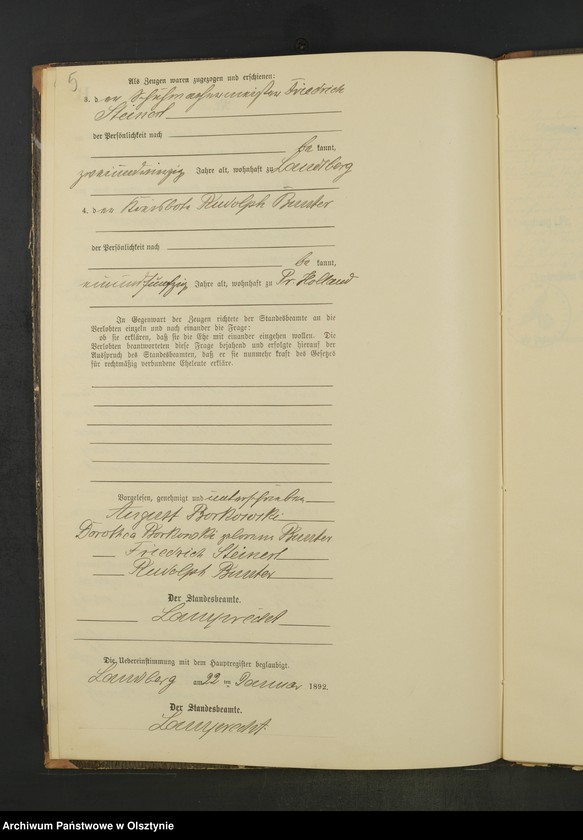 5
Als Zeugen waren zugezogen und erschienen:
3. der Schuhmachermeister Friedrich
Steinert
der Persönlichkeit nach
be kannt,
zweiunddreißig Jahre alt, wohnhaft zu Landsberg
4. der Kreisbote Rudolph Bunter
der Persönlichkeit nach
be kannt,
einundfünfzig Jahre alt, wohnhaft zu Pr. Holland
In Gegenwart der Zeugen richtete der Standesbeamte an die
Verlobten einzeln und nach einander die Frage:
ob sie erklären, daß sie die Ehe mit einander eingehen wollen. Die
Verlobten beantworteten diese Frage bejahend und erfolgte hierauf der
Ausspruch des Standesbeamten, daß er sie nunmehr kraft des Gesetzes
für rechtmäßig verbundene Eheleute erkläre.
Vorgelesen, genehmigt und unterschrieben
August Borkowski
Dorothea Borkowski geborene Bunter
Friedrich Steinert
Rudolph Bunter
Der Standesbeamte.
Lamprecht
Die Uebereinstimmung mit dem Hauptregister beglaubigt.
Landsberg am 22 ten Januar 1892.
Der Standesbeamte.
Lamprecht.
Archiwum Państwowe w Olsztynie